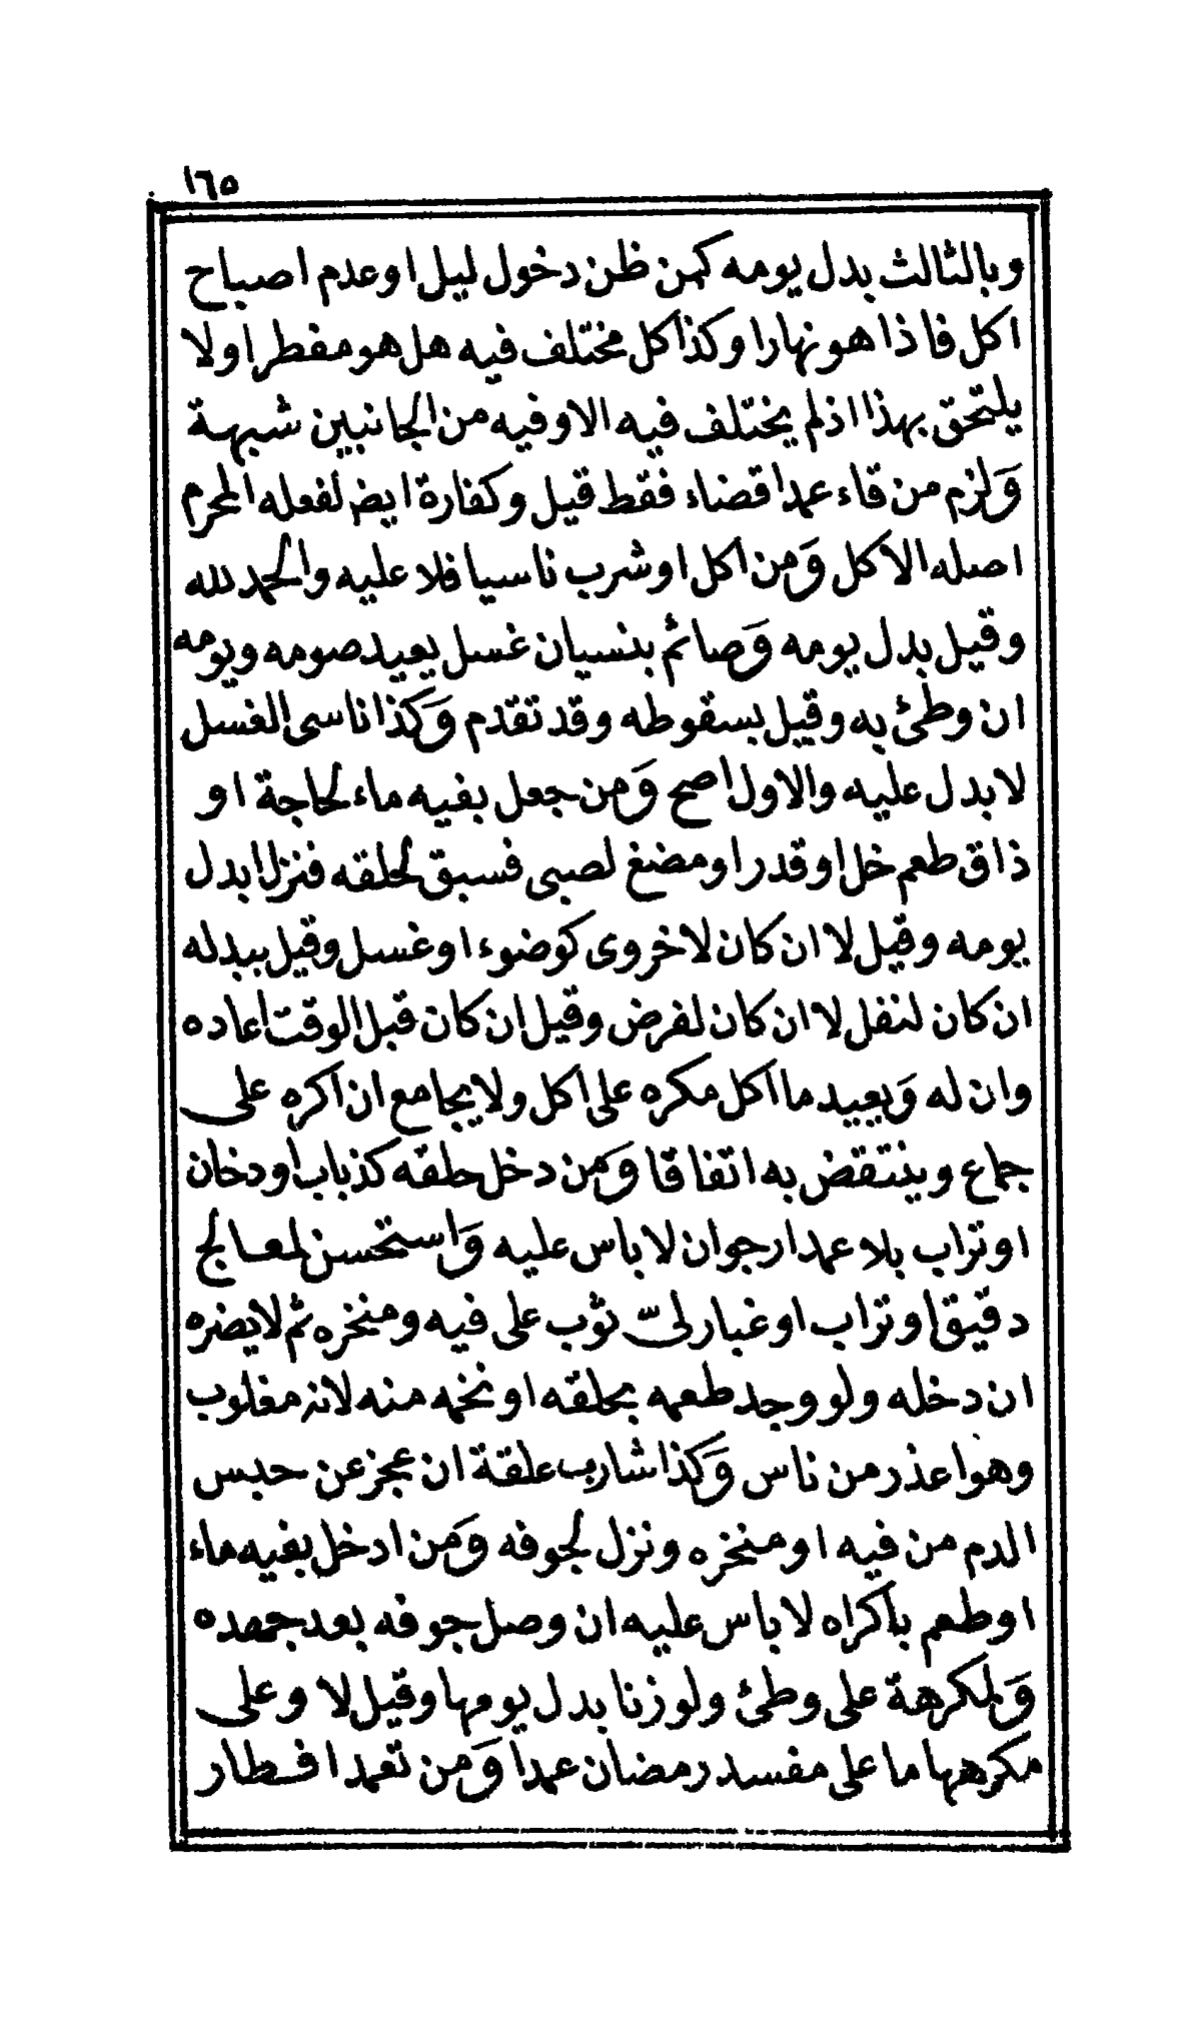 ١٦٥
وبالثالث بدل يومه كمن ظن دخول ليل او عدم اصباح
اكل فاذا هو نهارا وكذا كل مختلف فيه هل هو مفطر اولا
يلتحق بهذا اذ لم يختلف فيه الا وفيه من الجانبين شبهة
وَلزم من قاء عمدا قضاء فقط قيل وكفارة ايض لفعله المحرم
اصله الاكل وَمن اكل او شرب ناسيا فلا عليه والحمد لله
وقيل بدل يومه وَصائم بنسيان غسل يعيد صومه ويومه
ان وطئ به وقيل بسقوطه وقد تقدم وَكذا ناسى الغسل
لا بدل عليه والاول اصح وَمن جعل بفيه ماء لحاجة او
ذاق طعم خل او قدر او مضغ لصبى فسبق لحلقه فنزل ابدل
يومه وقيل لا ان كان لاخروى كوضوء او غسل وقيل يبدله
ان كان لنفل لا ان كان لفرض وقيل ان كان قبل الوقت اعاده
وان له وَيعيد ما اكل مكره على اكل ولا يجامع ان اكره على
جماع وينتقض به اتفاقا وَمن دخل حلقه كذباب او دخان
او تراب بلا عمد ارجوان لا باس عليه وَاستحسن لمعالج
دقيق او تراب او غبار لىّ ثوب على فيه ومنخره ثم لا يضره
ان دخله ولو وجد طعمه بحلقه او نخمه منه لانه مغلوب
وهو اعذر من ناس وَكذا شارب علقة ان عجز عن حبس
الدم من فيه او منخره ونزل لجوفه وَمن ادخل بفيه ماء
او طعم باكراه لا باس عليه ان وصل جوفه بعد جهده
وَلمكرهة على وطئ ولو زنا بدل يومها وقيل لا وعلى
مكرهها ما على مفسد رمضان عمدا وَمن تعمد افطار